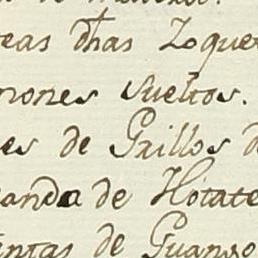 eas dhas Zoque
nones sueltos.
es de Grillos d
anda de Hotate
intas de Guango